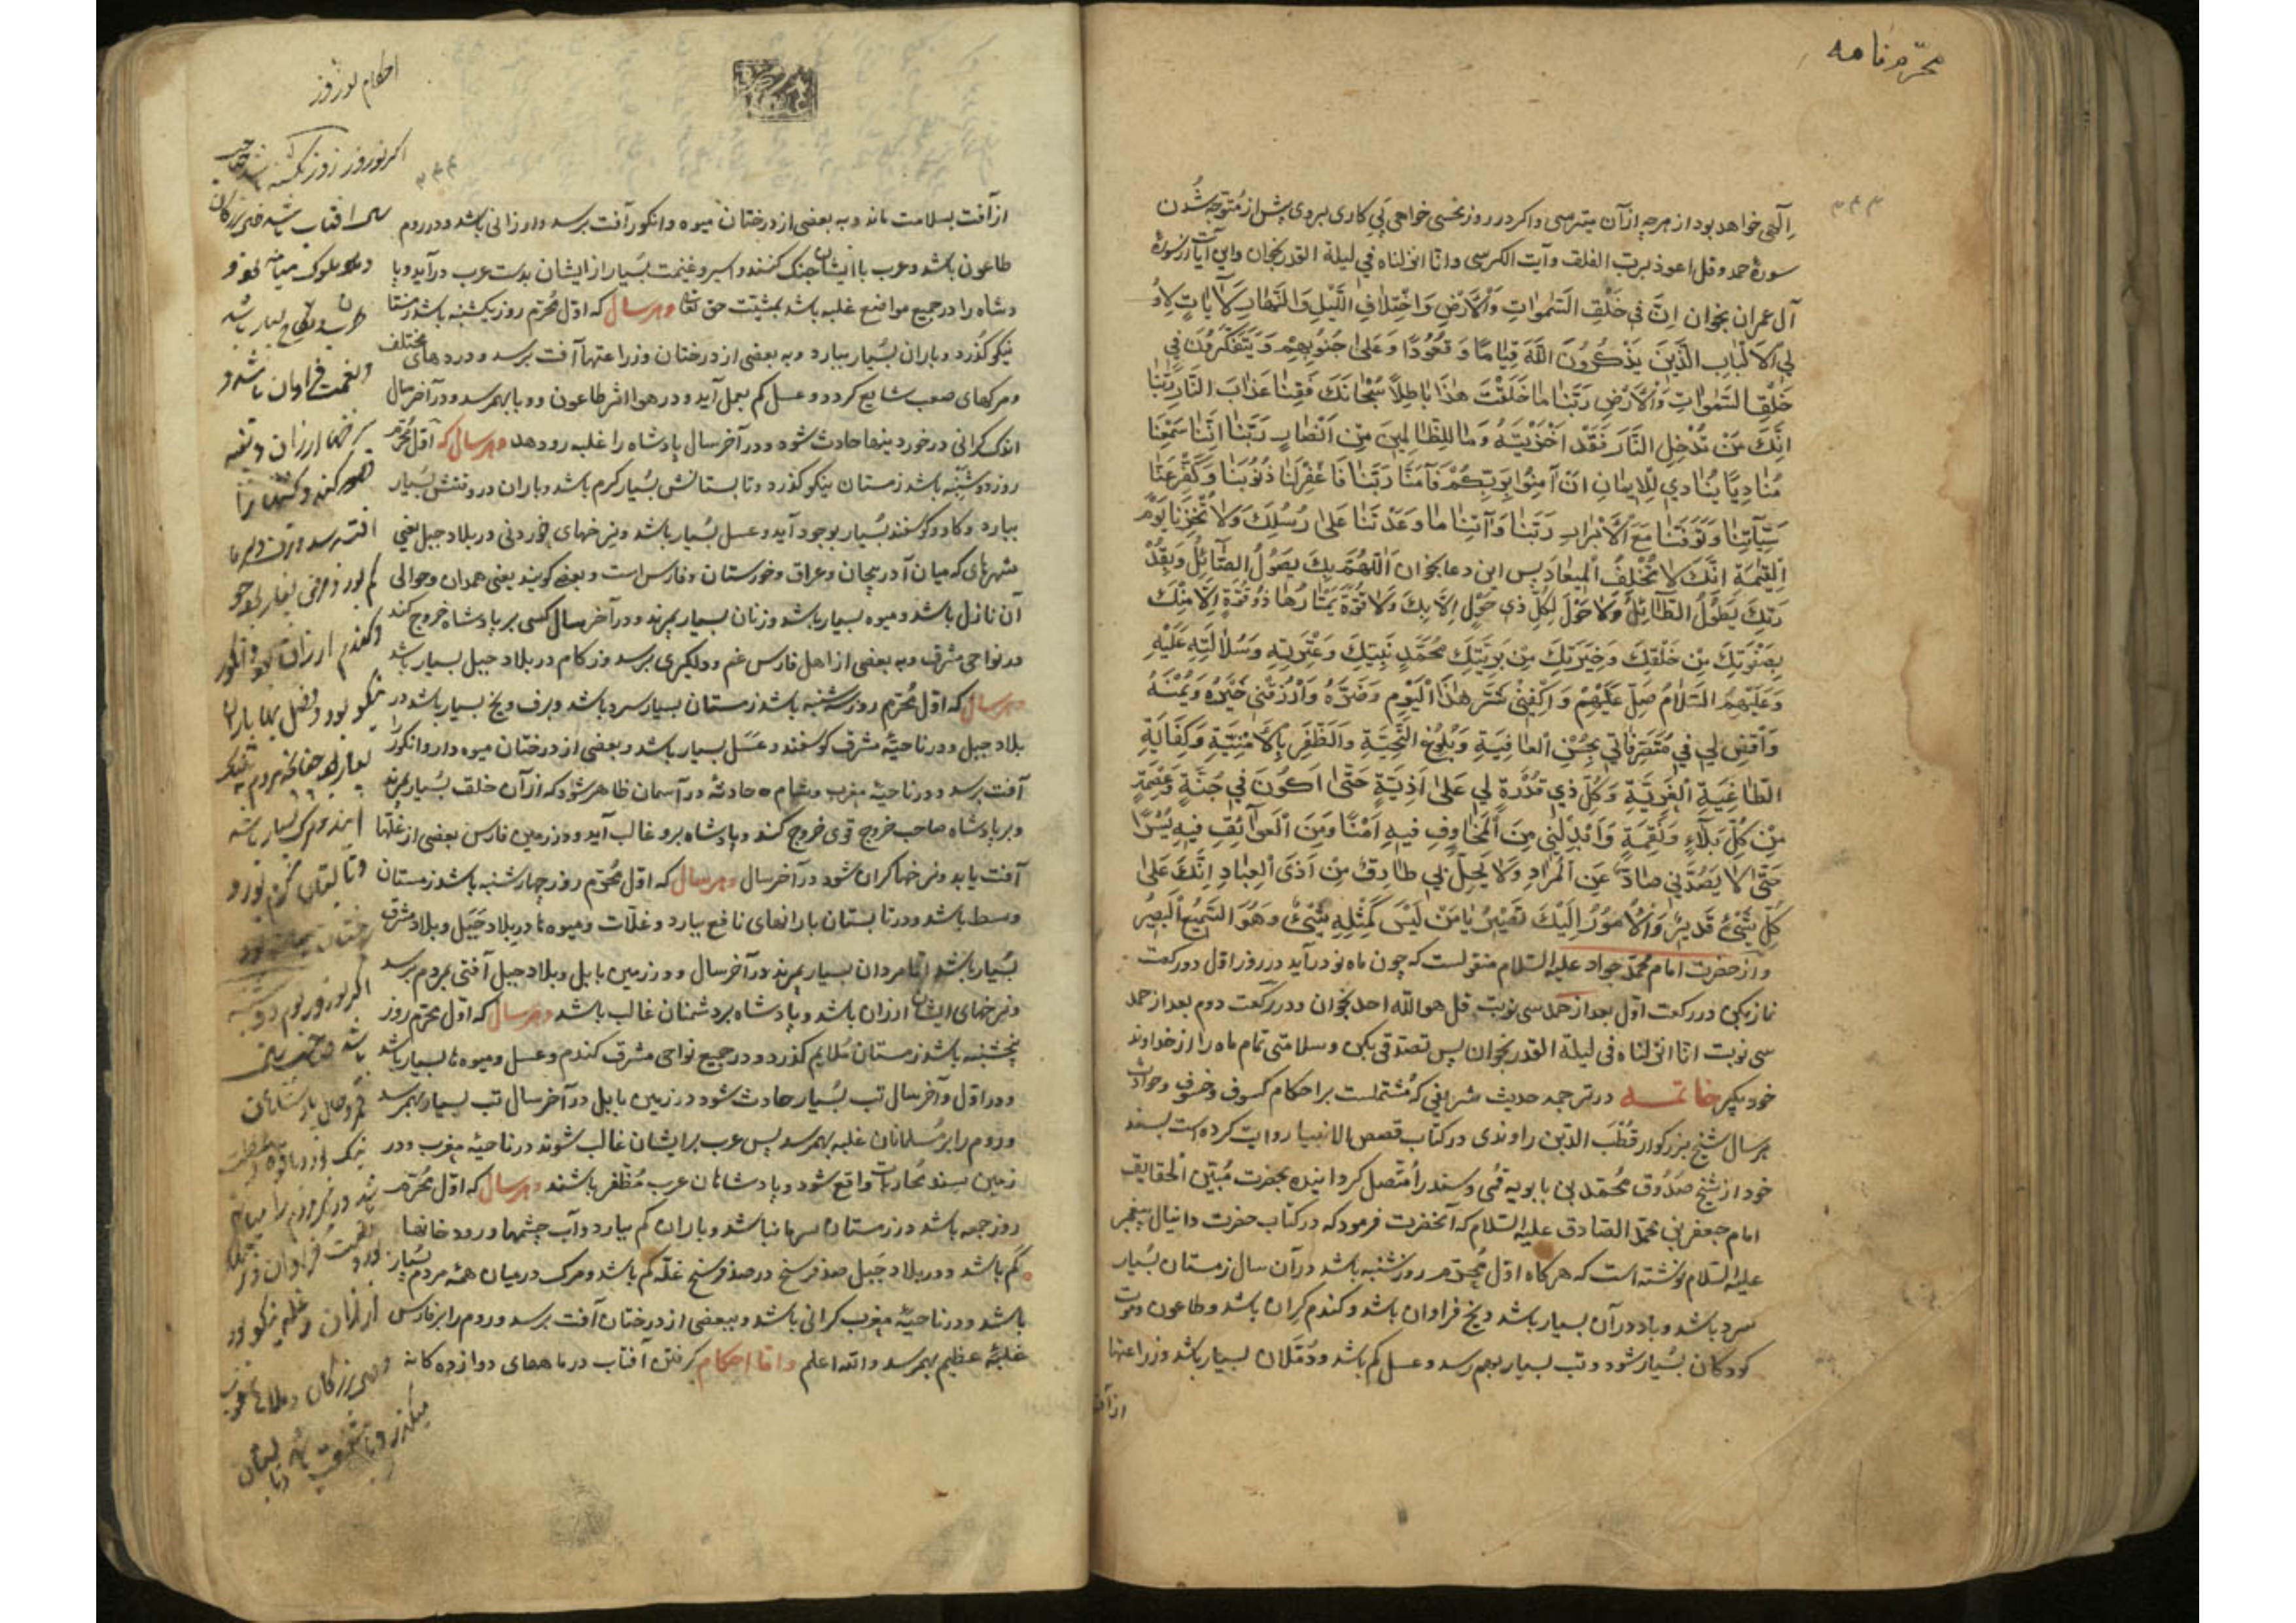 محرم نامه
۳۳۳
الهی خواهد بود از هرچه از آن میترسی و اکر در روز نحسی خواهی پی کاری بروی پیش از متوجه شدن
سورۀ حمد و قل اعوذ برب الفلق و آیت الکرسی و انا انزلناه فی لیلة القدر بخوان و این آیات از سورۀ
آل عمران بخوان اِنَّ فی خَلْقِ السَّمٰواتِ وَالْاَرْضِ وَاخْتِلافِ اللَّیْلِ وَالنَّهارِ لَآیاتٍ لِاُو
لِی الْاَلْبابِ الَّذینَ یَذْکُرُونَ اللّٰهَ قِیامًا وَ قُعُودًا وَ عَلیٰ جُنُوبِهِمْ وَ یَتَفَکَّرُونَ فی
خَلْقِ السَّمٰواتِ وَالْاَرْضِ رَبَّنا ما خَلَقْتَ هٰذا باطِلًا سُبْحانَکَ فَقِنا عَذابَ النّارِ رَبَّنا
اِنَّکَ مَنْ تُدْخِلِ النّارَ فَقَدْ اَخْزَیْتَهُ وَ ما لِلظّالِمینَ مِنْ اَنْصارٍ رَبَّنا اِنَّنا سَمِعْنا
مُنادِیًا یُنادی لِلْایمانِ اَنْ آمِنُوا بِرَبِّکُمْ فَآمَنّا رَبَّنا فَاغْفِرْلَنا ذُنُوبَنا وَ کَفِّرْ عَنّا
سَیِّآتِنا وَ تَوَفَّنا مَعَ الْاَبْرارِ رَبَّنا وَ آتِنا ما وَعَدْتَنا عَلیٰ رُسُلِکَ وَلا تُخْزِنا یَوْمَ
الْقِیٰمَةِ اِنَّکَ لا تُخْلِفُ الْمیعادَ پس این دعا بخوان اَللّٰهُمَّ بِکَ یَصُولُ الصّائِلُ وَ بِقُدْ
رَتِکَ یَطُولُ الطّائِلُ وَلا حَوْلَ لِکُلِّ ذی حَوْلٍ اِلّا بِکَ وَلا قُوَّةَ یَمْتارُها ذُوقُوَّةٍ اِلّا مِنْکَ
بِصَفْوَتِکَ مِنْ خَلْقِکَ وَ خِیَرَتِکَ مِنْ بَرِیَّتِکَ مُحَمَّدٍ نَبِیِّکَ وَ عِتْرَتِهِ وَ سُلالَتِهِ عَلَیْهِ
وَ عَلَیْهِمُ السَّلامُ صَلِّ عَلَیْهِمْ وَ اکْفِنی شَرَّ هٰذَا الْیَوْمِ وَ ضَرَّهُ وَارْزُقْنی خَیْرَهُ وَ یُمْنَهُ
وَاقْضِ لی فی مُتَصَرَّفاتی بِحُسْنِ الْعافِیَةِ وَ بُلُوغِ الْمَحَبَّةِ وَالظَّفَرِ بِالْاُمْنِیَّةِ وَ کِفایَةِ
الطّاغِیَةِ الْغَوِیَّةِ وَ کُلِّ ذی قُدْرَةٍ لی عَلیٰ اَذِیَّةٍ حَتّیٰ اَکُونَ فی جُنَّةٍ وَ عِصْمَةٍ
مِنْ کُلِّ بَلاءٍ وَ نِقْمَةٍ وَ اَبْدِلْنی مِنَ الْمَخاوِفِ فیهِ اَمْنًا وَ مِنَ الْعَوائِقِ فیهِ یُسْرًا
حَتّیٰ لا یَصُدَّنی صادٌّ عَنِ الْمُرادِ وَلا یَحِلَّ بی طارِقٌ مِنْ اَذَی الْعِبادِ اِنَّکَ عَلیٰ
کُلِّ شَیْءٍ قَدیرٌ وَالْاُمُورُ اِلَیْکَ تَصیرُ یا مَنْ لَیْسَ کَمِثْلِهِ شَیْءٌ وَ هُوَ السَّمیعُ الْبَصیرُ
و از حضرت امام محمد جواد علیه السلام منقولست که چون ماه نو درآید در روز اول دو رکعت
نماز بکن در رکعت اول بعد از حمد سی نوبت قل هو الله احد بخوان و در رکعت دوم بعد از حمد
سی نوبت انا انزلناه فی لیلة القدر بخوان پس تصدقی بکن و سلامتی تمام ماه را از خداوند
خود بکیر خاتمه در ترجمه حدیث شریفی که مشتملست بر احکام کسوف و خسوف و حوادث
هر سال شیخ بزرکوار قطب الدین راوندی در کتاب قصص الانبیا روایت کرده است بسند
خود از شیخ صدوق محمد بن بابویه قمی و سند را متصل کردانیده بحضرت مبین الحقایق
امام جعفر بن محمد الصادق علیه السلام که آنحضرت فرمود که در کتاب حضرت دانیال پیغمبر
علیه السلام نوشته است که هرکاه اول محرم روز شنبه باشد در آن سال زمستان بسیار
سرد باشد و باد در آن بسیار باشد و یخ فراوان باشد و کندم کران باشد و طاعون و موت
کودکان بسیار شود و تب بسیار بهم رسد و عسل کم باشد و دملان بسیار باشد و زراعتها
از آفت
۳۳۴
از آفت بسلامت ماند و به بعضی از درختان میوه و انکور آفت برسد و ارزانی باشد و در روم
طاعون باشد و عرب با ایشان جنک کنند و اسیر و غنیمت بسیار از ایشان بدست عرب درآید و پا
دشاه را در جمیع مواضع غلبه باشد بمشیت حق تعا و هر سال که اول محرم روز یکشنبه باشد زمستا
نیکو کذرد و باران بسیار ببارد و به بعضی از درختان و زراعتها آفت برسد و دردهای مختلف
و مرکهای صعب شایع کردد و عسل کم بعمل آید و در هوا اثر طاعون و وبا بهمرسد و در آخر سال
اندک کرانی در خوردنیها حادث شود و در آخر سال پادشاه را غلبه رو دهد و هر سال که اول محرم
روز دوشنبه باشد زمستان نیکو کذرد و تابستانش بسیار کرم باشد و باران در وقتش بسیار
ببارد و کاو و کوسفند بسیار بوجود آید و عسل بسیار باشد و نرخهای خوردنی در بلاد جبل یعنی
شهرهای که میان آذربیجان و عراق و خوزستان و فارس است و بعضی کویند یعنی همدان و حوالی
آن نازل باشد و میوه بسیار باشد و زنان بسیار بمیرند و در آخر سال کسی بر پادشاه خروج کند
در نواحی مشرق و به بعضی از اهل فارس غم و دلکیری برسد و زکام در بلاد جبل بسیار باشد
و هر سال که اول محرم روز سه شنبه باشد زمستان بسیار سرد باشد و برف و یخ بسیار باشد در
بلاد جبل و در ناحیۀ مشرق کوسفند و عسل بسیار باشد و بعضی از درختان میوه دار و انکور را
آفت برسد و در ناحیۀ مغرب و شام حادثه در آسمان ظاهر شود که از آن خلق بسیار بمیرند
و بر پادشاه صاحب خروج قوی خروج کند و پادشاه برو غالب آید و در زمین فارس بعضی از غلتها
آفت یابد و نرخها کران شود در آخر سال و هر سال که اول محرم روز چهارشنبه باشد زمستان
وسط باشد و در تابستان بارانهای نافع ببارد و غلات و میوه ها در بلاد جبل و بلاد مشرق
بسیار باشد اما مردان بسیار بمیرند در آخر سال و در زمین بابل و بلاد جبل آفتی بمردم برسد
و نرخهای ایشان ارزان باشد و پادشاه بر دشمنان غالب باشد و هر سال که اول محرم روز
پنجشنبه باشد زمستان ملایم کذرد و در جمیع نواحی مشرق کندم و عسل و میوه ها بسیار باشد
و در اول و آخر سال تب بسیار حادث شود در زمین بابل در آخر سال تب بسیار بهمرسد
و روم را بر مسلمانان غلبه بهمرسد پس عرب بر ایشان غالب شوند در ناحیۀ مغرب و در
زمین سند محاربات واقع شود و پادشاهان عرب مظفر باشند و هر سال که اول محرم
روز جمعه باشد در زمستان سرما نباشد و باران کم ببارد و آب چشمها و رودخانها
کم باشد و در بلاد جبل صد فرسخ در صد فرسخ غله کم باشد و مرک در میان همه مردم بسیار
باشد و در ناحیۀ مغرب کرانی باشد و ببعضی از درختان آفت برسد و روم را بر فارس
غلبۀ عظیم بهمرسد والله اعلم و اما احکام کرفتن آفتاب در ماههای دوازده کانه
احکام نوروز
اکر نوروز روز یکشنبه باشد صاحب